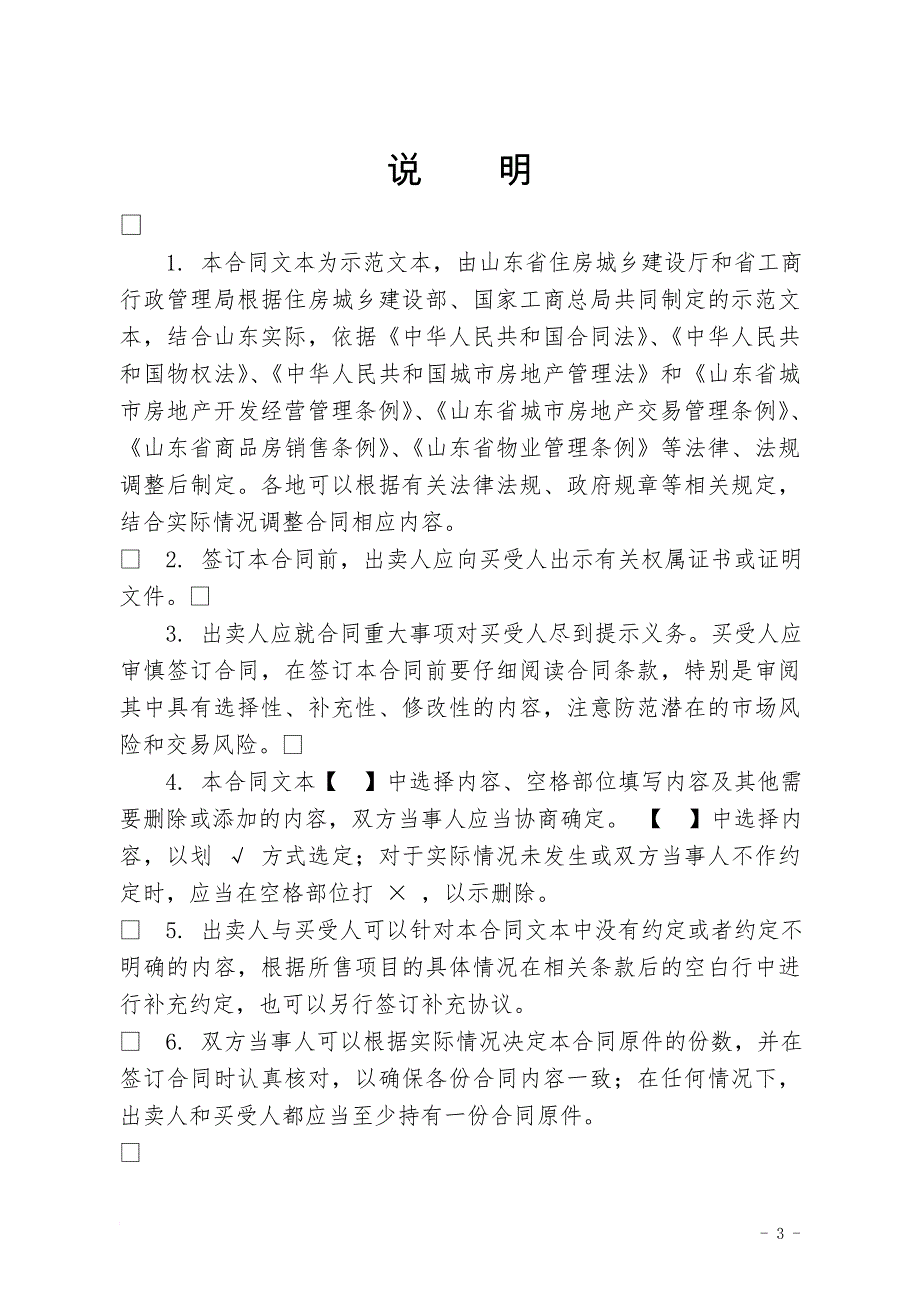 说　　明
□
1. 本合同文本为示范文本，由山东省住房城乡建设厅和省工商
行政管理局根据住房城乡建设部、国家工商总局共同制定的示范文
本，结合山东实际，依据《中华人民共和国合同法》、《中华人民共
和国物权法》、《中华人民共和国城市房地产管理法》和《山东省城
市房地产开发经营管理条例》、《山东省城市房地产交易管理条例》、
《山东省商品房销售条例》、《山东省物业管理条例》等法律、法规
调整后制定。各地可以根据有关法律法规、政府规章等相关规定，
结合实际情况调整合同相应内容。
□ 2. 签订本合同前，出卖人应向买受人出示有关权属证书或证明
文件。□
3. 出卖人应就合同重大事项对买受人尽到提示义务。买受人应
审慎签订合同，在签订本合同前要仔细阅读合同条款，特别是审阅
其中具有选择性、补充性、修改性的内容，注意防范潜在的市场风
险和交易风险。□
4. 本合同文本【　】中选择内容、空格部位填写内容及其他需
要删除或添加的内容，双方当事人应当协商确定。 【　】中选择内
容，以划 √ 方式选定；对于实际情况未发生或双方当事人不作约
定时，应当在空格部位打 × ，以示删除。
□ 5. 出卖人与买受人可以针对本合同文本中没有约定或者约定不
明确的内容，根据所售项目的具体情况在相关条款后的空白行中进
行补充约定，也可以另行签订补充协议。
□ 6. 双方当事人可以根据实际情况决定本合同原件的份数，并在
签订合同时认真核对，以确保各份合同内容一致；在任何情况下，
出卖人和买受人都应当至少持有一份合同原件。
□
- 3 -